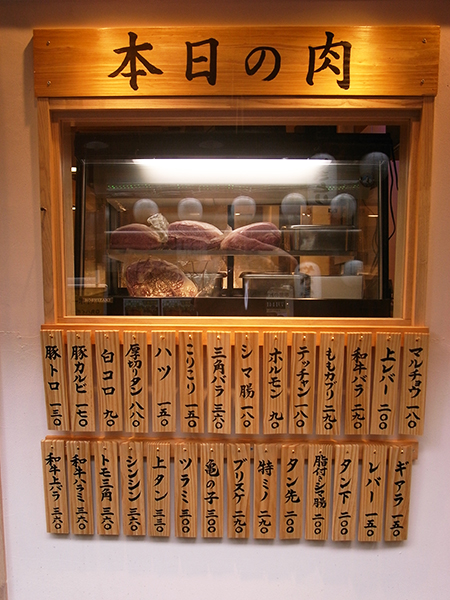 本日の肉
マルチョウ 一八〇
上レバー 二〇〇
和牛バラ 二九〇
ももカブリ 二九〇
テッチャン 一八〇
ホルモン 九〇
シマ腸 一八〇
三角バラ 三六〇
こりこり 一五〇
ハツ 一五〇
厚切りタン 八八〇
白コロ 九〇
豚カルビ 一七〇
豚トロ 一三〇
ギアラ 一五〇
レバー 一五〇
タン下 二〇〇
脂付きシマ腸 二〇〇
タン先 二〇〇
特ミノ 二九〇
ブリスケ 二九〇
亀の子 三〇〇
ツラミ 三〇〇
上タン 三三〇
シンシン 三六〇
トモ三角 三六〇
和牛ハラミ 三六〇
和牛上バラ 三六〇